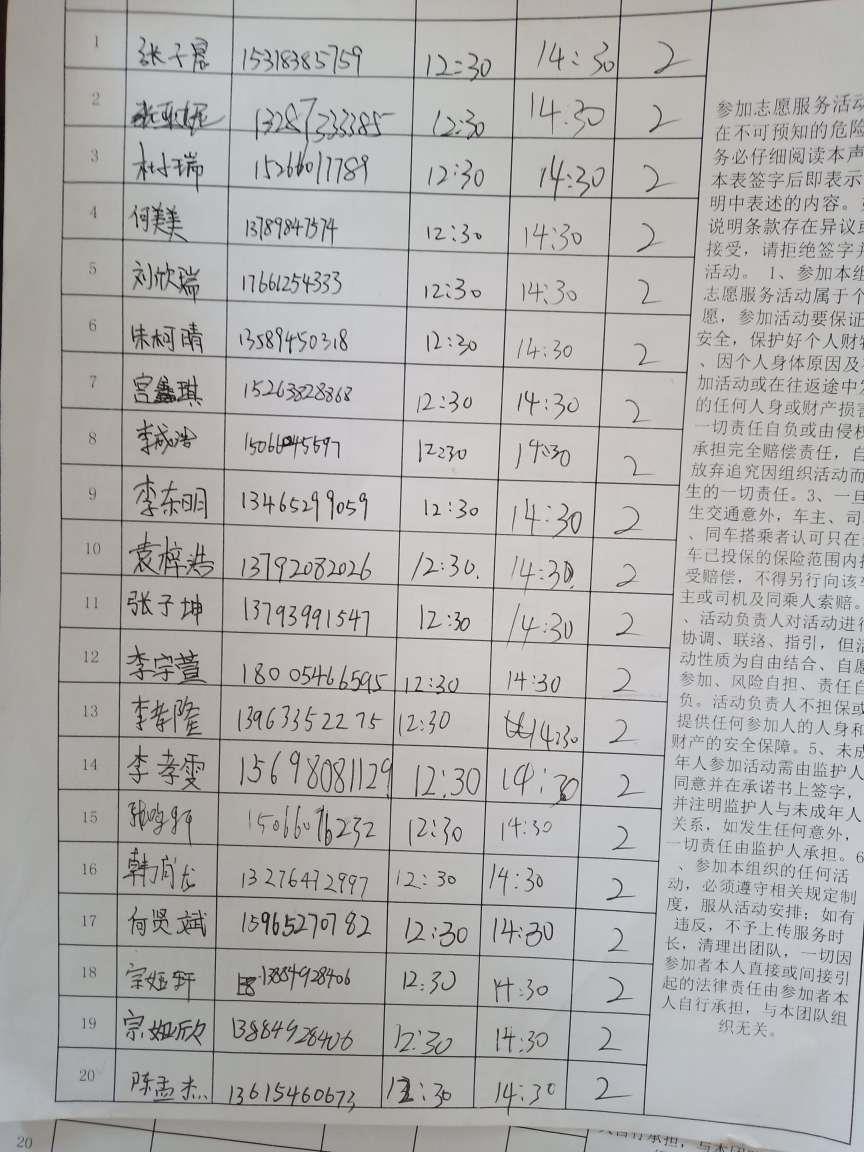 1 张子晨 15318385759 12:30 14:30 2
2 13287333385 12:30 14:30 2
3 杜小瑞 15266017789 12:30 14:30 2
4 何美美 13789847574 12:30 14:30 2
5 刘欣瑞 17661254333 12:30 14:30 2
6 朱柯晴 13589450318 12:30 14:30 2
7 宫鑫琪 15263828868 12:30 14:30 2
8 李成浩 12:30 14:30 2
9 李东明 13465299059 12:30 14:30 2
10 袁梓浩 13792082026 12:30. 14:30. 2
11 张子坤 13793991547 12:30 14:30 2
12 李宇萱 18005466595 12:30 14:30 2
13 李孝隆 13963352275 12:30 14:30 2
14 李孝雯 15698081129 12:30 14:30 2
15 15066076232 12:30 14:30 2
16 韩 龙 13276472997 12:30 14:30 2
17 何贤斌 15965270782 12:30 14:30 2
18 宗姬轩 13884928406 12:30 14:30 2
19 宗姬欣 13884928406 12:30 14:30 2
20 陈孟杰 13615460673 12:30 14:30 2
参加志愿服务活动
在不可预知的危险
务必仔细阅读本声
本表签字后即表示
明中表述的内容。
说明条款存在异议或
接受，请拒绝签字并
活动。 1、参加本组
志愿服务活动属于个
愿，参加活动要保证
安全，保护好个人财物
、因个人身体原因及
加活动或在往返途中发
的任何人身或财产损害
一切责任自负或由侵权
承担完全赔偿责任，自
放弃追究因组织活动而
生的一切责任。3、一旦
生交通意外，车主、司
、同车搭乘者认可只在
车已投保的保险范围内
受赔偿，不得另行向该车
主或司机及同乘人索赔。
、活动负责人对活动进行
协调、联络、指引，但活
动性质为自由结合、自愿
参加、风险自担、责任自
负。活动负责人不担保或
提供任何参加人的人身和
财产的安全保障。5、未成
年人参加活动需由监护人
同意并在承诺书上签字，
并注明监护人与未成年人
关系，如发生任何意外，
一切责任由监护人承担。6
、参加本组织的任何活
动，必须遵守相关规定制
度，服从活动安排；如有
违反，不予上传服务时
长，清理出团队，一切因
参加者本人直接或间接引
起的法律责任由参加者本
人自行承担，与本团队组
织无关。
20
人自行承担，与本团队